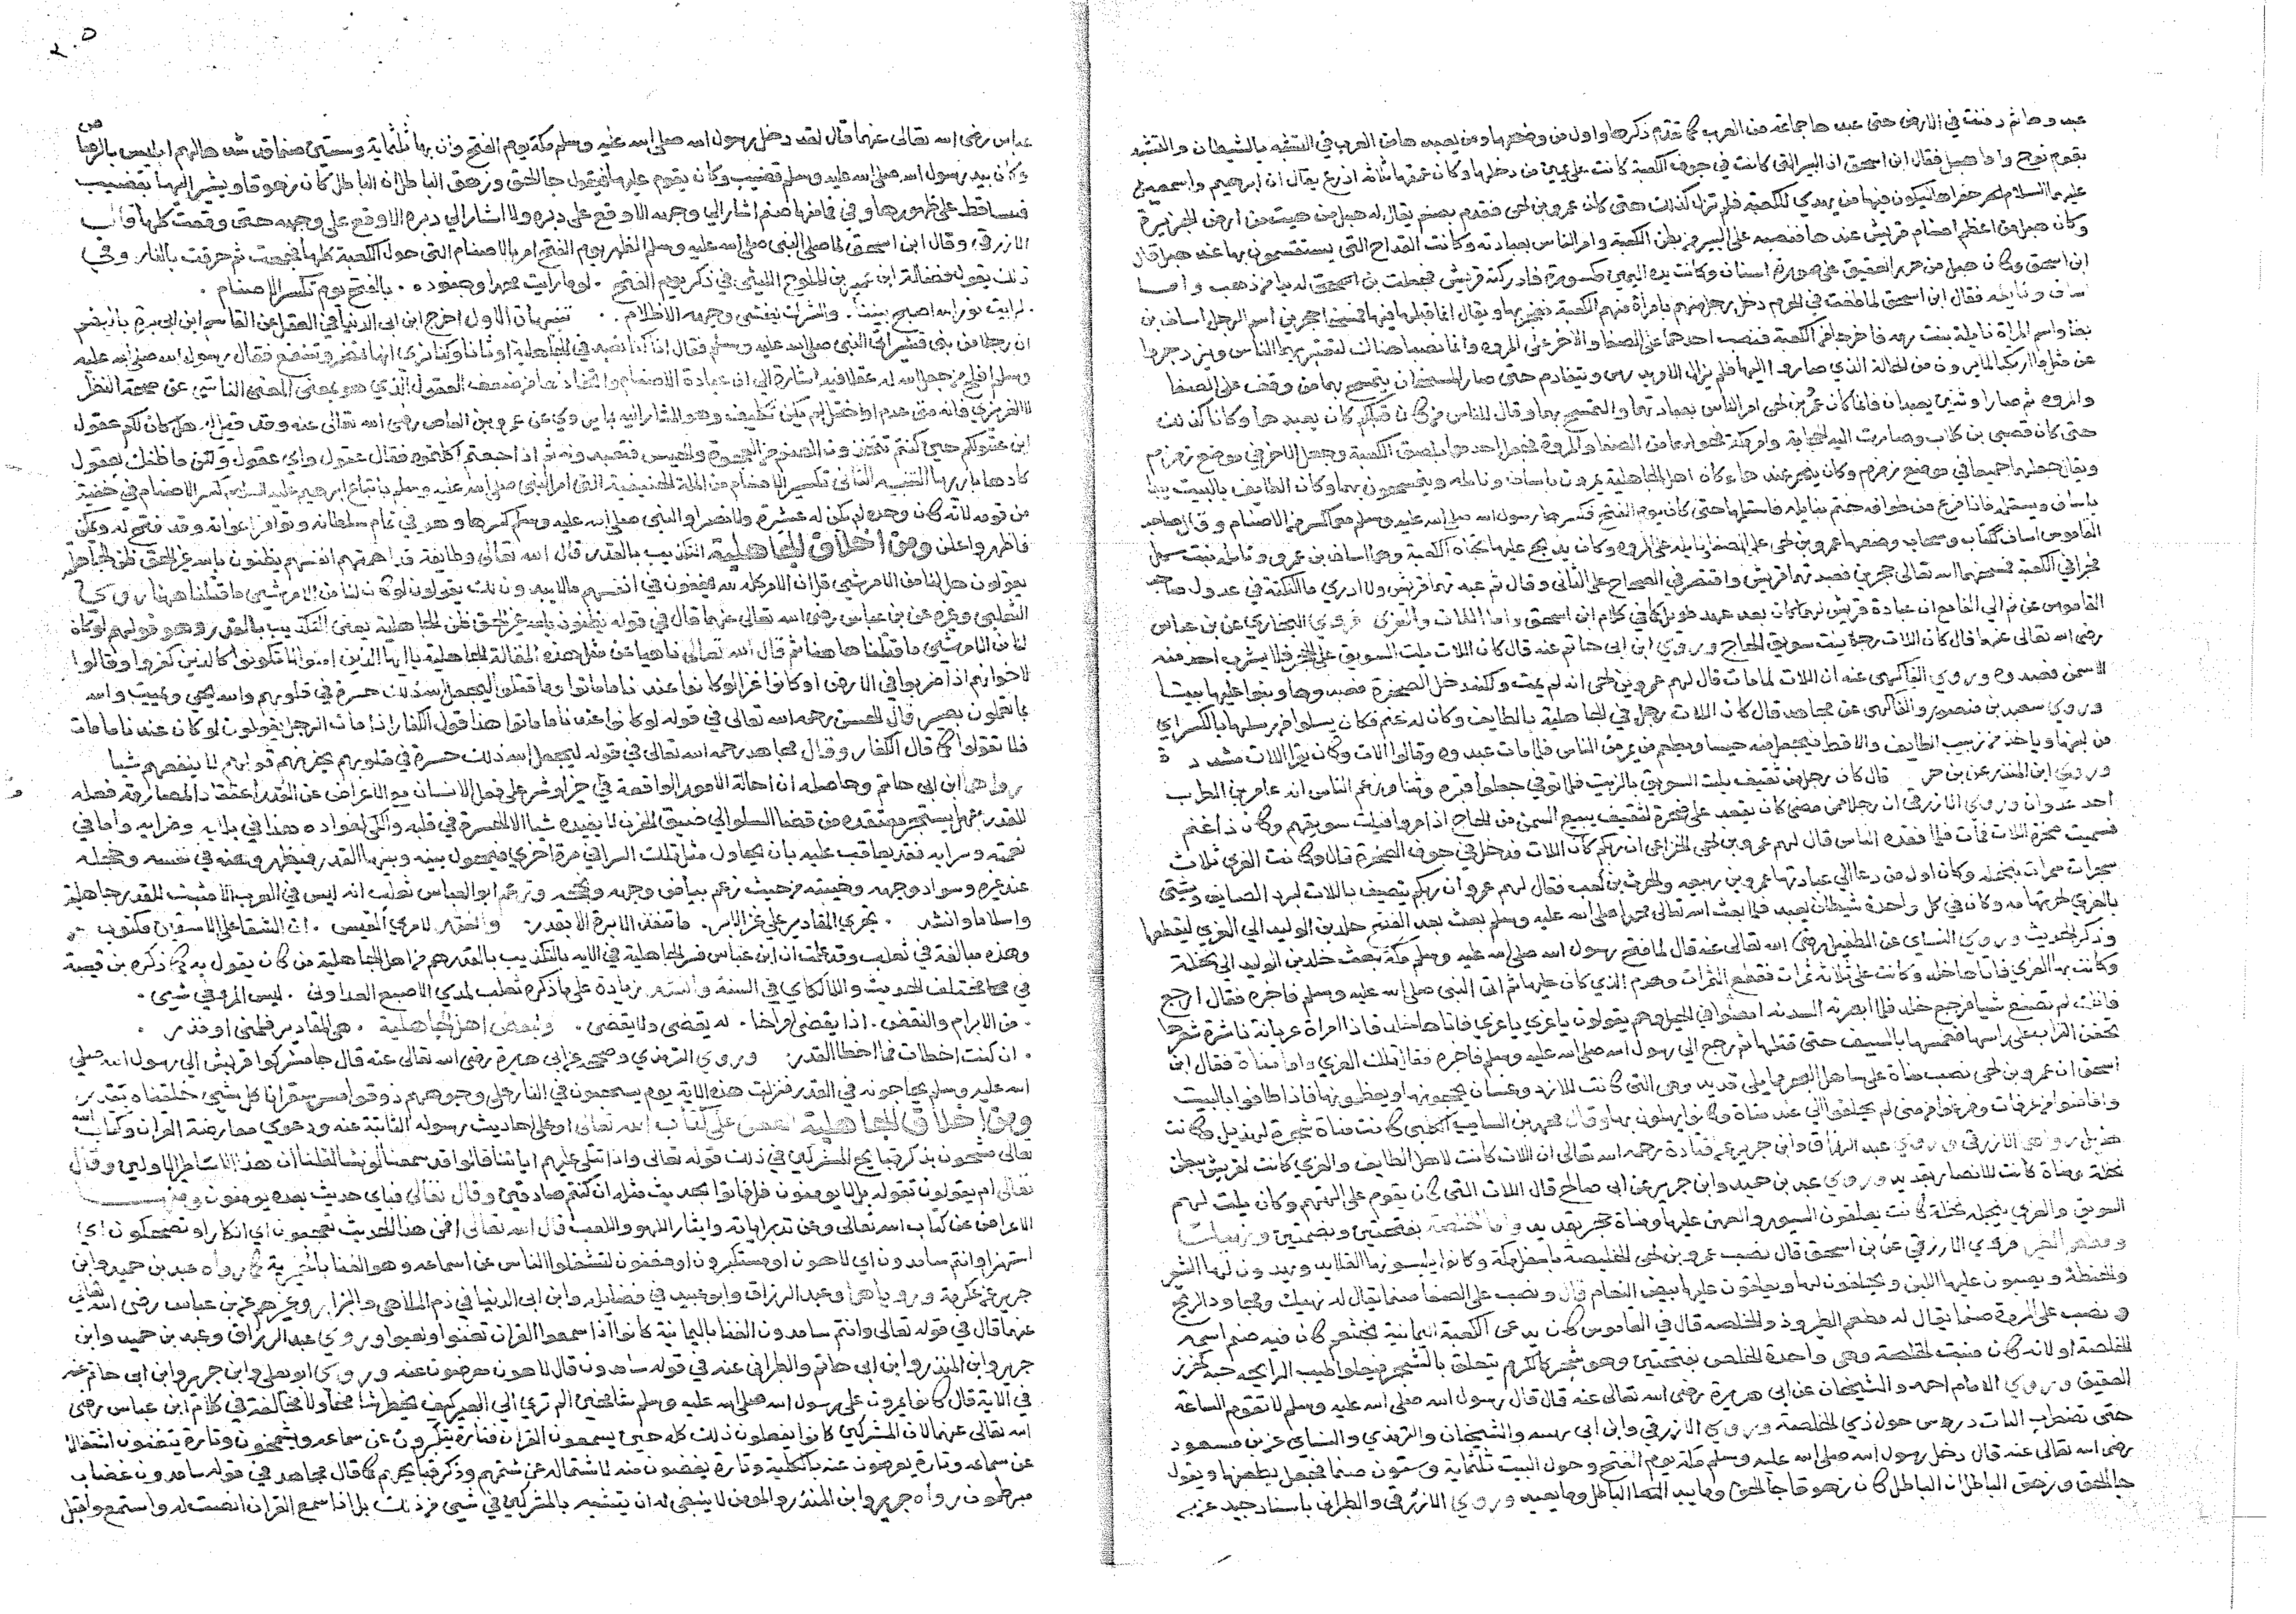 عبدوها ثم دفنت في الارض حتى عبدها جماعة من العرب كما تقدم ذكرها واول من وضعها ومن يعبدها من العرب في التشبه بالشيطان والتشبه
بقوم نوح واما هبل فقال ابن اسحق ان البير التي كانت في جوف الكعبة كانت على يمين من دخلها وكان عمقها ثلثة اذرع يقال ان ابرهيم واسمعيل
عليهما السلام حفراها ليكون فيها ما يهدي للكعبة فلم تزل كذلك حتى كان عمرو بن لحى فقدم بصنم يقال له هبل من هيت من ارض الجزيرة
وكان هبل من اعظم اصنام قريش عندها فنصبه على البير في بطن الكعبة وامر الناس بعبادته وكانت القداح التي يستقسمون بها عند هبل قال
ابن اسحق وكان هبل من خرز العقيق على صورة انسان وكانت يده اليمنى مكسورة فادركته قريش فجعلت له يدا من ذهب واما
اساف ونايله فقال ابن اسحق لما طغت جرهم في الحرم دخل رجل منهم بامراة منهم الكعبة ففجر بها ويقال انما قبلها فيها فمسخا حجرين اسم الرجل اساف بن
بغا واسم المراة نايلة بنت فاخرجا من الكعبة فنصب احدهما على الصفا والاخر على المروه وانما نصبا هنالك ليعتبر بهما الناس ويزدجروا
عن مثل ما ارتكبا لما يرون من الحالة الذي صاروا اليها فلم يزل الامر يدرس ويتقادم حتى صارا يتمسح بهما من وقف على الصفا
والمروه ثم صارا وثنين يعبدان فلما كان عمرو بن لحى امر الناس بعبادتهما والتمسح بهما وقال للناس من كان قبلكم كان يعبدها وكانا كذلك
حتى كان قصى بن كلاب وصارت اليه الحجابة وامر مكة فحولهما من الصفا والمروة فجعل احدهما بلصق الكعبة وجعل الاخر في موضع زمزم
ويقال جعلهما جميعا في موضع زمزم وكان ينحر عندها وكان اهل الجاهلية يمرون باساف ونايله ويتمسحون بهما وكان الطايف بالبيت يبدا
باساف ويستلمه فاذا فرغ من طوافه ختم بنايله فاستلمها حتى كان يوم الفتح فكسرها رسول الله صلى الله عليه وسلم مع ما كسر من الاصنام وقال صاحب
القاموس اساف ككتاب وسحاب وضعهما عمرو بن لحى على الصفا ونايله على المروه وكان يذبح عليهما تجاه الكعبة وهما اساف بن عمرو ونايله بنت سهل
فجرا في الكعبة فمسخهما الله تعالى حجرين فعبدتهما قريش واقتصر في الصحاح على الثاني وقال ثم عبدتهما قريش ولا ادري ما النكتة في عدول صاحب
القاموس عن ثم الى الفا مع ان عبادة قريش لهما كان بعد عهد طويل كما في كلام ابن اسحق واما اللات والعزى فروي البخاري عن بن عباس
رضى الله تعالى عنهما قال كان اللات رجلا يلت سويق الحاج وروي ابن ابي حاتم عنه قال كان اللات يلت السويق على الحجر فلا يشرب احد منه
الا سمن فعبدوه وروي الفاكهى عنه ان اللات لما مات قال لهم عمرو بن لحى انه لم يمت ولكنه دخل الصخرة فعبدوها وبنوا عليها بيتا
وروي سعيد بن منصور والفاكهى عن مجاهد قال كان اللات رجل في الجاهلية بالطايف وكان له غنم فكان يسلوا من رسلها بالكسر اي
من لبنها وياخذ من زبيب الطايف والاقط فيجعل منه حيسا ويطعم من يمر من الناس فلما مات عبدوه وقالوا اللات وكان يقرا اللات مشددة
وروي ابن المنذر عن بن قال كان رجل من ثقيف يلت السويق بالزيت فلما توفي جعلوا قبره وثنا وزعم الناس انه عامر بن الظرب
احد عدوان وروي الازرقي ان رجلا ممن مضى كان يقعد على صخرة لثقيف يبيع السمن من الحاج اذا مروا فيلت سويقهم وكان ذا غنم
فسميت صخرة اللات فمات فلما فقده الناس قال لهم عمرو بن لحى الخزاعى ان ربكم كان اللات فدخل في جوف الصخرة قال وكانت العزى ثلاث
سمرات بنخله وكان اول من دعا الى عبادتها عمرو بن ربيعه والحرث بن كعب فقال لهم عمرو ان ربكم يتصيف باللات لبرد الطايف ويشتى
بالعزي لحر تهامه وكان في كل واحدة شيطان يعبد فلما بعث الله تعالى محمدا صلى الله عليه وسلم بعث بعد الفتح خلد بن الوليد الي العزي ليقطعها
وذكر الحديث وروي النساى عن الطفيل رضى الله تعالى عنه قال لما فتح رسول الله صلى الله عليه وسلم مكة بعث خلد بن الوليد الى نخلة
وكانت بها العزي فاتاها خلد وكانت على ثلاثة سمرات فقطع السمرات وهدم الذي كان عليها ثم اتى النبي صلى الله عليه وسلم فاخبره فقال ارجع
فانك لم تصنع شيا فرجع خلد فلما ابصرته السدنه امعنوا في الجبل وهم يقولون يا عزي يا عزي فاتاها خلد فاذا امراة عريانة ناشرة شعرها
تحفن التراب على راسها فعممها بالسيف حتى قتلها ثم رجع الي رسول الله صلى الله عليه وسلم فاخبره فقال تلك العزي واما مناة فقال ابن
اسحق ان عمرو بن لحى نصب مناة على ساحل البحر مما يلي قديد وهى التى كانت للازد وغسان يحجونها ويعظمونها فاذا طافوا بالبيت
وافاضوا من عرفات وفرغوا من منى لم يحلقوا الا عند مناة وكانوا يهلون بها وقال محمد بن السايب الكلبى كانت مناة صخرة لهذيل وكانت
هذيل رواهن الازرقى وروي عبد الرزاق وابن جرير عن قتادة رحمه الله تعالى ان اللات كانت لاهل الطايف والعزي كانت لقريش ببطن
نخلة ومناة كانت للانصار بقديد وروي عبد بن حميد وابن جرير عن ابي صالح قال اللات التي كان يقوم على الهتهم وكان يلت لهم
السويق والعزي بنخله نخلة كانت يعلقون السيور والعهن عليها ومناة حجر بقديد واما الخلصة بفتحتين وبضمتين
فروي الازرقي عن بن اسحق قال نصب عمرو بن لحى الخلصة باسفل مكة وكانوا يلبسونها القلايد ويهدون لها الشعير
والحنطة ويصبون عليها اللبن ويذبحون لها ويعلقون عليها بيض النعام قال ونصب على الصفا صنما يقال له نهيك ومجاود الريح
ونصب على المروة صنما يقال له مطعم الطير وذو الخلصه قال في القاموس كان يدعى الكعبة اليمانية لخثعم كان فيه صنم اسمه
الخلصة او لانه كان منبت الخلصة وهى واحدة الخلص بفتحتين وهو شجر كالكرم يتعلق بالشجر فيعلوا طيب الرايحه حبه كخرز
العقيق وروي الامام احمد والشيخان عن ابى هريرة رضى الله تعالى عنه قال قال رسول الله صلى الله عليه وسلم لا تقوم الساعة
حتى تضطرب اليات دوس حول ذي الخلصة وروي الازرقي وابن ابى والشيخان والترمذي والنساى عن بن مسعود
رضى الله تعالى عنه قال دخل رسول الله صلى الله عليه وسلم مكة يوم الفتح وحول البيت ثلثماية وستون صنما فجعل يطعنها ويقول
جا الحق وزهق الباطل ان الباطل كان زهوقا جا الحق وما يبدي الباطل وما يعيد وروي الازرقى والطبراني باسناد جيد عن بن
٢٠٥
عباس رضى الله تعالى عنهما قال لقد دخل رسول الله صلى الله عليه وسلم مكة يوم الفتح وان بها ثلثماية وستين صنما قد شدها لهم ابليس بالرصاص
وكان بيد رسول الله صلى الله عليه وسلم قضيب وكان يقوم عليها فيقول جا الحق وزهق الباطل ان الباطل كان زهوقا ويشير اليها بقضيب
فتساقط على ظهورها وفي فما منها صنم اشار الي وجهه الا وقع على دبره ولا اشار الي دبره الا وقع على وجهه حتى وقعت كلها وقال
الازرقي وقال ابن اسحق لما صلى النبى صلى الله عليه وسلم الظهر يوم الفتح امر بالاصنام التى حول الكعبة كلها فجمعت ثم حرقت بالنار وفي
ذلك يقول فضالة ابن عمير بن الملوح الليثى في ذكر يوم الفتح . لو ما رايت محمدا وجنوده . بالفتح يوم تكسر الاصنام .
. لرايت نور الله اصبح بيننا . والشرك يغشى وجهه الاظلام . تنبيهان الاول اخرج ابن ابى الدنيا في العقل عن القاسم ابن ابى بزة
ان رجلا من بنى قشير اتى النبى صلى الله عليه وسلم فقال انا كنا نعبد في الجاهلية اوثانا وكنا نري انها تضر وتنفع فقال رسول الله صلى الله عليه
وسلم افلح من جعل الله له عقلا فيه اشارة الى ان عبادة الاصنام واتخاذها من ضعف العقول الذي هو بمعنى الناشى عن صحة النظر
لا الغريزي فانه متى عدم او اختل لم يكن تكليف وهو المشار اليه بما يروي عن عمرو بن العاص رضى الله تعالى عنه وقد قيل له هل كان لكم عقول
اين عقولكم حين كنتم تتخذون الصنم من العجوة والحيس فتعبدونه ثم اذا جعتم اكلتموه فقال عقول واي عقول ولكن ما ظنك بعقول
كادها باريها التنبيه الثانى تكسير الاصنام من الملة الحنيفية التى امر النبى صلى الله عليه وسلم باتباع ابرهيم عليه السلام كسر الاصنام في خفية
من قومه لانه كان وحده لم يكن له عشيرة ولا نصرا والنبى صلى الله عليه وسلم كسرها وهو في تمام سلطانه وتوافر اعوانه وقد فتح له ومكن
فاظهر واعلن ومن اخلاق الجاهلية التكذيب بالقدر قال الله تعالى وطايفة قد اهمتهم انفسهم يظنون بالله غير الحق ظن الجاهلية
يقولون هل لنا من الامر من شى قل ان الامر كله لله يخفون في انفسهم ما لا يبدون لك يقولون لو كان لنا من الامر شى ما قتلنا ههنا روي
الثعلبى وغيره عن بن عباس رضى الله تعالى عنهما قال في قوله يظنون بالله غير الحق ظن الجاهلية يعنى التكذيب بالقدر وهو قولهم لو كان
لنا من الامر شى ما قتلنا ههنا ثم قال الله تعالى ناهيا عن مثل هذه المقالة الجاهلية يا ايها الذين امنوا لا تكونوا كالذين كفروا وقالوا
لاخوانهم اذا ضربوا في الارض او كانوا غزا لو كانوا عندنا ما ماتوا وما قتلوا ليجعل الله ذلك حسرة في قلوبهم والله يحيى ويميت والله
بما تعملون بصير قال الحسن رحمه الله تعالى في قوله لو كانوا عندنا ما ماتوا هذا قول الكفار اذا مات الرجل يقولون لو كان عندنا ما مات
فلا تقولوا كما قال الكفار وقال مجاهد رحمه الله تعالى في قوله ليجعل الله ذلك حسرة في قلوبهم يحزنهم قولهم لا ينفعهم شيا
رواهما ابن ابى حاتم وحاصله ان احالة الامور الواقعة في خير او شر على فعل الانسان مع الاعراض عن القدر
نعمته وسرايه فقد يعاقب عليه بان يحاول مثل تلك السرا في مرة اخري فيحول بينه وبينها القدر
عند غيره وسواد وجهه وخيبته من حيث زعم بياض وجهه وزعم ابو العباس ثعلب انه ليس في العرب الا مثبت للقدر جاهلية
واسلاما وانشد . تجري المقادير على غرز الابر . ما تنفذ الابرة الا بقدر . وانشد لامري القيس . ان الشقا على الاشقين مكتوب .
وهذه مبالغه في ثعلب وقد علمت ان ابن عباس فسر الجاهلية في الايه بالتكذيب بالقدر من اهل الجاهلية من كان يقول به كما ذكره بن قتيبة
في مختلف الحديث واللالكاي في السنة زيادة على ما ذكره ثعلب لذي الاصبع العدوانى . ليس المرء في شيى .
. من الابرام والنقض . اذا يقضى امرا خا . له يقضى ولا يقضى . ولبعض اهل الجاهلية . هى المقادير فلمنى او فذر .
. ان كنت اخطات فما اخطا القدر . وروي الترمذي وصححه عن ابى هريرة رضى الله تعالى عنه قال جا مشركوا قريش الي رسول الله صلى
الله عليه وسلم يخاصمونه في القدر فنزلت هذه الاية يوم يسحبون في النار على وجوههم ذوقوا مس سقر انا كل شيى خلقناه بقدر
ومن اخلاق الجاهلية على كتاب الله تعالى او على احاديث رسوله الثابتة عنه ودعوي معارضة القران وكتاب الله
تعالى في ذلك قوله تعالى واذا تتلى عليهم اياتنا قالوا قد سمعنا لو نشا لقلنا مثل هذا ان هذا الا اساطير الاولين وقال
تعالى ام يقولون تقوله بل لا يومنون فلياتوا بحديث مثله ان كانوا صادقين وقال تعالى فباي حديث بعده يومنون
الاعراض عن كتاب الله تعالى وعن تدبر اياته وايثار اللهو واللعب قال الله تعالى افمن هذا الحديث تعجبون اي انكارا وتضحكون اي
استهزا وانتم سامدون اي لاهون او مستكبرون او مغنون لتشغلوا الناس عن استماعه وهو الغنا بالحميرية كما رواه عبد بن حميد وابن
جرير عن عكرمة ورويا هما وعبد الرزاق وابو عبيد في فضايله وابن ابى الدنيا في ذم الملاهى والبزار وغيرهم عن بن عباس رضى الله تعالى
عنهما قال في قوله تعالى وانتم سامدون الغنا باليمانية كانوا اذا سمعوا القران تغنوا ولعبوا وروي عبد الرزاق وعبد بن حميد وابن
جرير وابن المنذر وابن ابى حاتم والطبرانى عنه في قوله سامدون قال لاهون معرضون عنه وروي ابو يعلى وابن جرير وابن ابى حاتم عنه
في الاية قال كانوا يمرون على رسول الله صلى الله عليه وسلم شامخين الم تري الى البعير كيف يخطر شامخا ولا مخالفة في كلام ابن عباس رضى
الله تعالى عنهما لان المشركين كانوا يفعلون ذلك كله حين يسمعون القران فتارة يتكبرون عن سماعه ويشمخون وتارة يتغنون
عن سماعه وتارة يعرضون عنه بالكلية وتارة يغضبون منه لاشتماله على شتمهم وذكر قبايحهم كما قال مجاهد في قوله سامدون غضاب
مبرطمون رواه جرير وابن المنذر والمومن لا ينبغى له ان يتشبه بالمشركين في شيى من ذلك بل اذا سمع القران انصت له واستمع واقبل